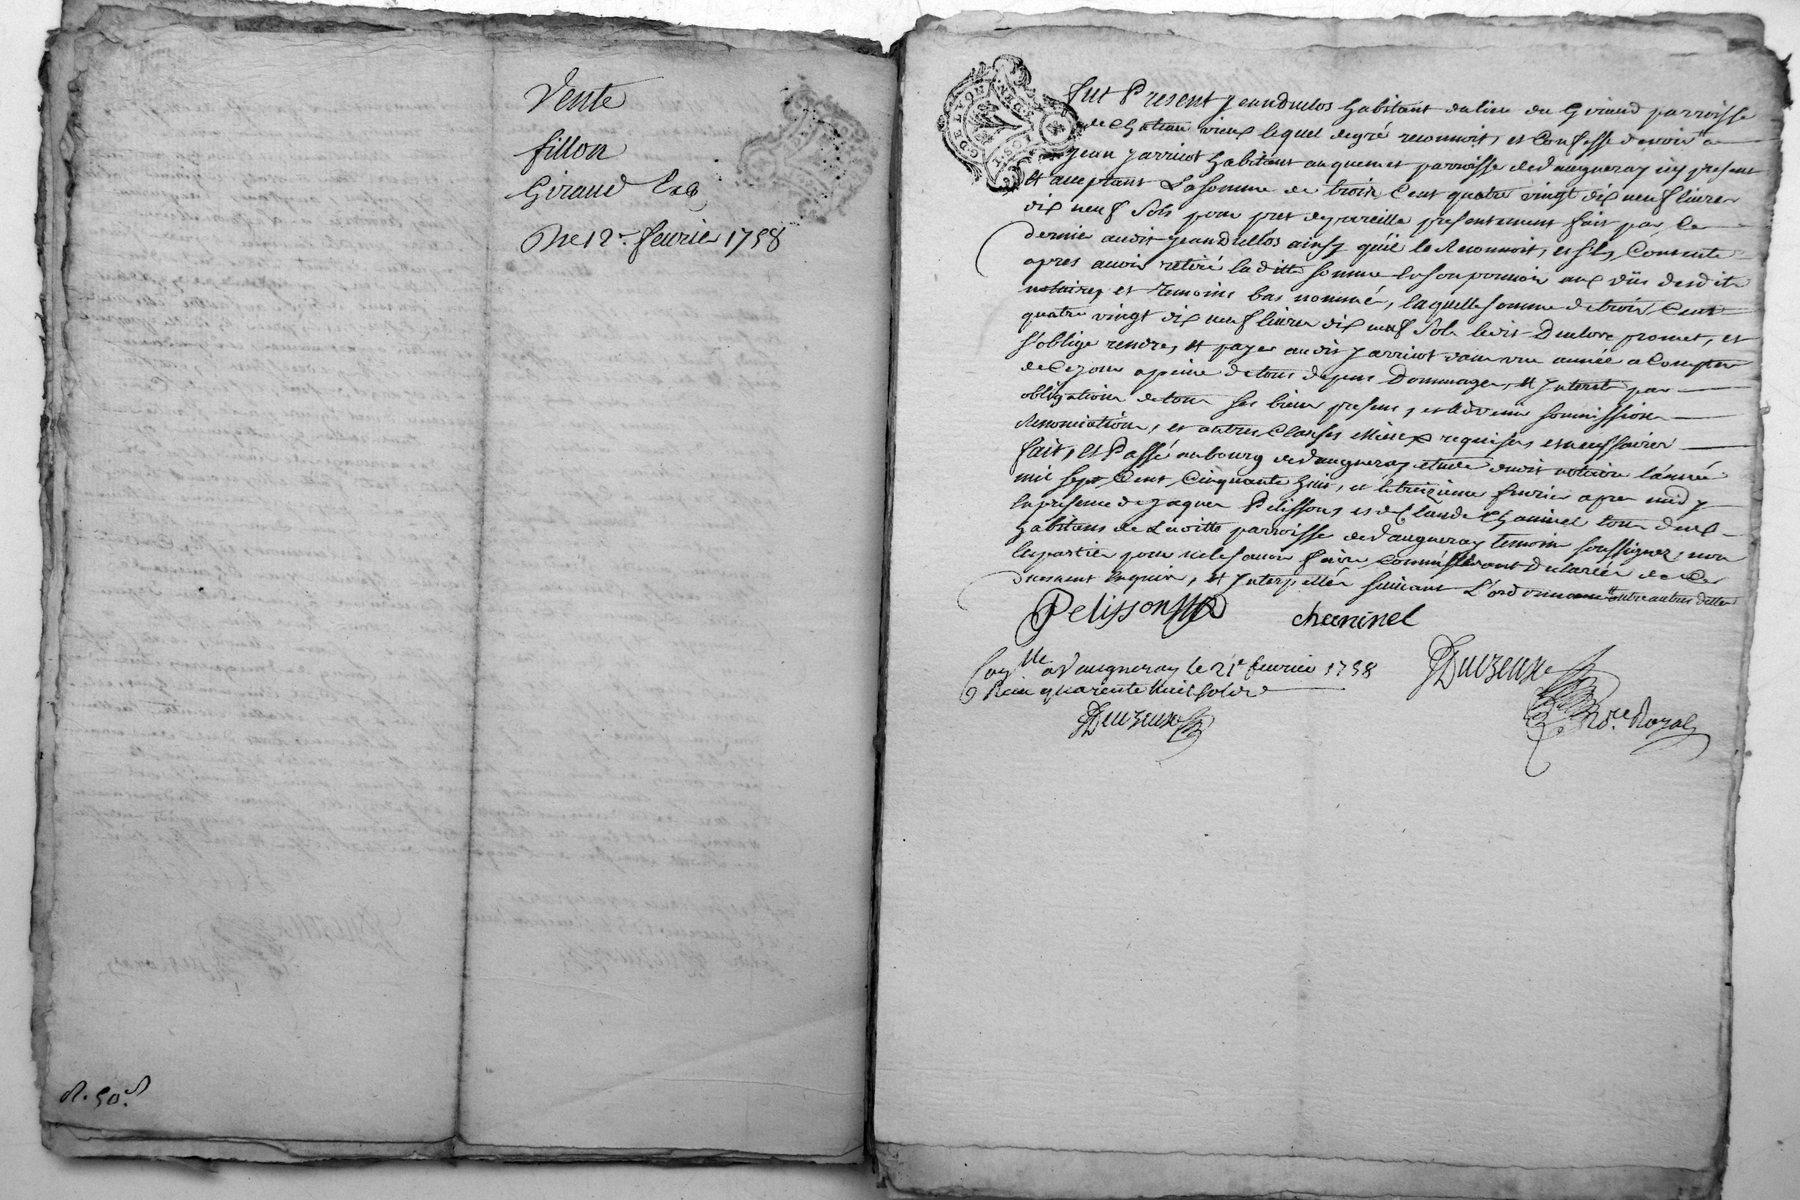 Vente
fillon
Giraud
Du 12e. fevrier 1758
R. 50 s
G DE LYON
fut Present Jean Duclos habitant du lieu du Giraud parroisse
de Chateau vieux lequel degré reconnoit, et Confesse devoir a
Jean Jarricot habitant au quemet parroisse de Vaugneray icy present
et acceptant La somme de trois Cent quatre vingt dix neuf livres
dix neuf sols pour pret de pareille presentement fait par ce
dernier audit Jean Duclos ainsy qu'il le Reconnoit, et s'en Contente
apres avoir retiré laditte somme en son pouvoir aux vûs desdits
notaires et temoins bas nommé, laquelle somme de trois Cent
quatre vingt dix neuf livres dix neuf sols ledit Duclos promet, et
s'oblige rendre, et payer audit Jarricot dans une année a Compter
de Ce jour a peine de tous depens Dommages, et Interet par
obligation de tous ses biens presens, et advenir soumission
Renonciation, et autres Clauses mises requises et necessaires
fait, et Passé au bourg de Vaugneray etude dudit notaire l'année
mil sept Cent Cinquante huit, et le treizieme fevrier apres midy
en presence de Jaques Pelissons et de Claude Chaninel tous deux
habitans de Laditte parroisse de Vaugneray temoins soussignez, non
les parties pour ne le savoir faire Comme ont Declarée de ce
duement enquis, et Interpellés suivant L'ordonnance
Pelisson chaninel
Con.lle a Vaugneray le 21e fevrier 1758
Reçu quarente huit sols
Duizeux
Duizeux
No.re Royal